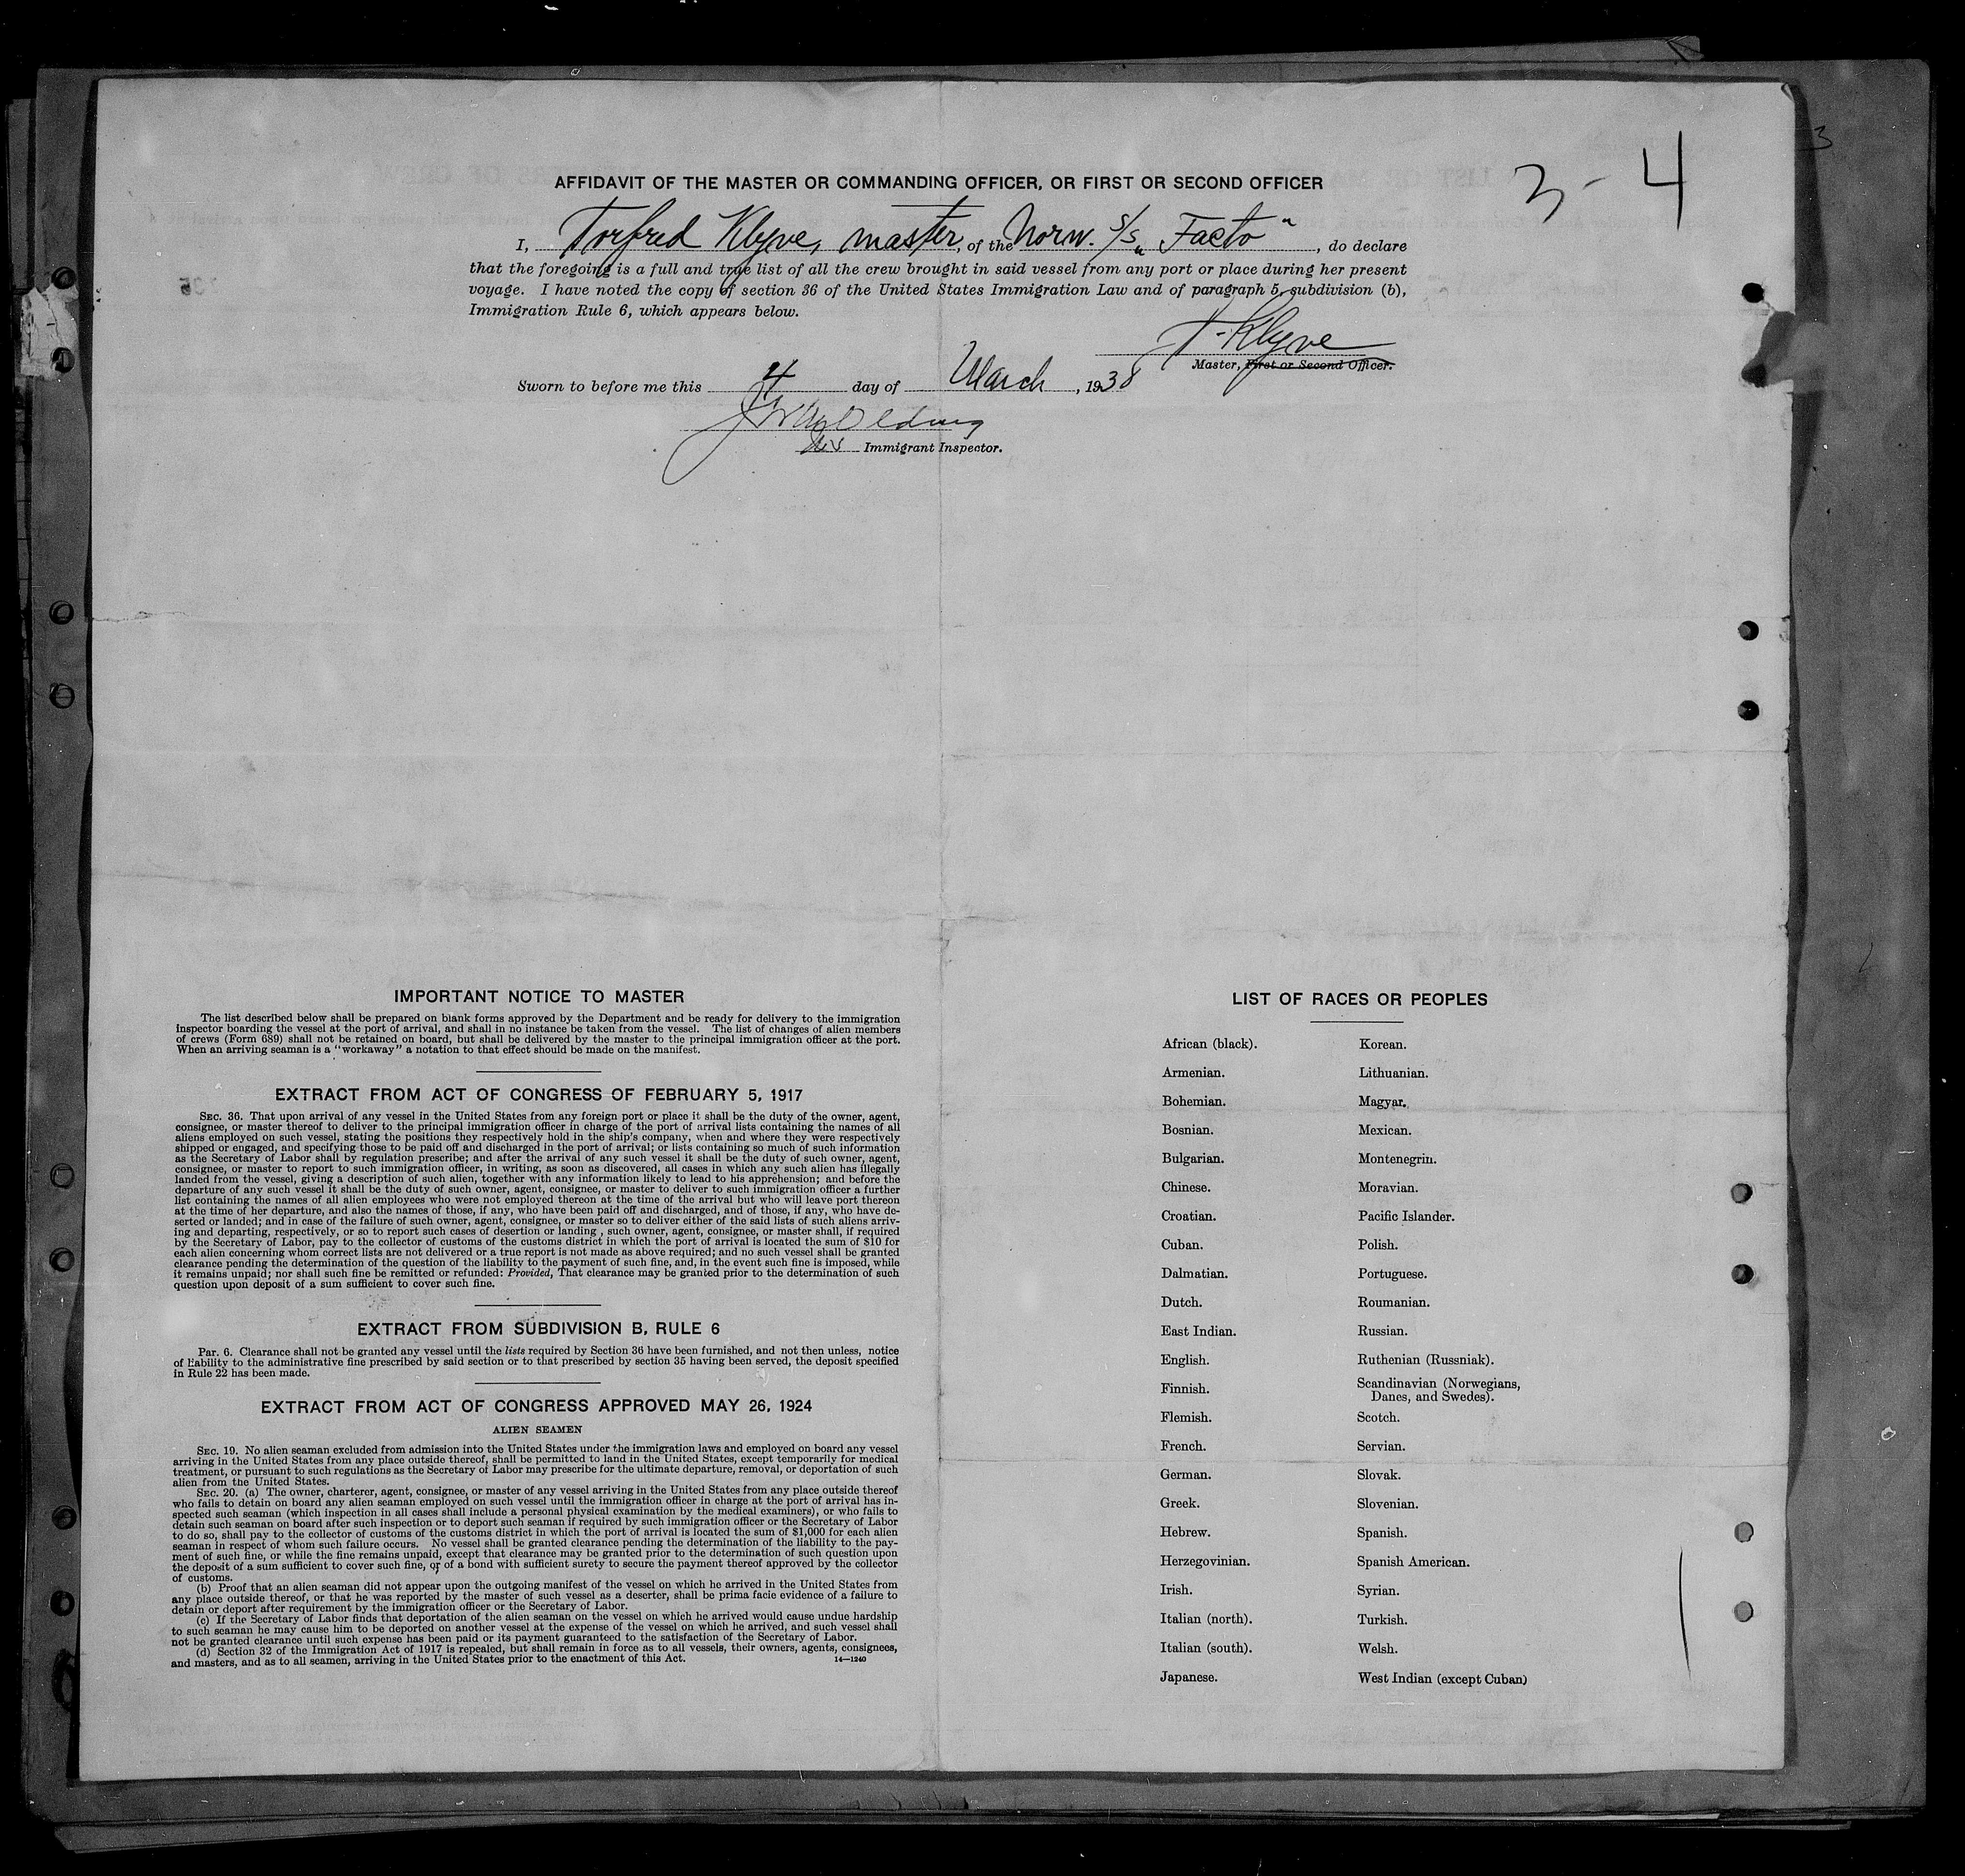 3
3 - 4
AFFIDAVIT OF THE MASTER OR COMMANDING OFFICER, OR FIRST OR SECOND OFFICER
I, Torfred Klyve, master, of the Norw. S/S „Facto", do declare
that the foregoing is a full and true list of all the crew brought in said vessel from any port or place during her present
voyage. I have noted the copy of section 36 of the United States Immigration Law and of paragraph 5, subdivision (b),
Immigration Rule 6, which appears below.
T. Klyve
Master, First or Second Officer.
Sworn to before me this 4 day of March, 1938
Immigrant Inspector.
IMPORTANT NOTICE TO MASTER
The list described below shall be prepared on blank forms approved by the Department and be ready for delivery to the immigration
inspector boarding the vessel at the port of arrival, and shall in no instance be taken from the vessel. The list of changes of alien members
of crews (Form 689) shall not be retained on board, but shall be delivered by the master to the principal immigration officer at the port.
When an arriving seaman is a "workaway" a notation to that effect should be made on the manifest.
EXTRACT FROM ACT OF CONGRESS OF FEBRUARY 5, 1917
SEC. 36. That upon arrival of any vessel in the United States from any foreign port or place it shall be the duty of the owner, agent,
consignee, or master thereof to deliver to the principal immigration officer in charge of the port of arrival lists containing the names of all
aliens employed on such vessel, stating the positions they respectively hold in the ship's company, when and where they were respectively
shipped or engaged, and specifying those to be paid off and discharged in the port of arrival; or lists containing so much of such information
as the Secretary of Labor shall by regulation prescribe; and after the arrival of any such vessel it shall be the duty of such owner, agent,
consignee, or master to report to such immigration officer, in writing, as soon as discovered, all cases in which any such alien has illegally
landed from the vessel, giving a description of such alien, together with any information likely to lead to his apprehension; and before the
departure of any such vessel it shall be the duty of such owner, agent, consignee, or master to deliver to such immigration officer a further
list containing the names of all alien employees who were not employed thereon at the time of the arrival but who will leave port thereon
at the time of her departure, and also the names of those, if any, who have been paid off and discharged, and of those, if any, who have de-
serted or landed; and in case of the failure of such owner, agent, consignee, or master so to deliver either of the said lists of such aliens arriv-
ing and departing, respectively, or so to report such cases of desertion or landing , such owner, agent, consignee, or master shall, if required
by the Secretary of Labor, pay to the collector of customs of the customs district in which the port of arrival is located the sum of $10 for
each alien concerning whom correct lists are not delivered or a true report is not made as above required; and no such vessel shall be granted
clearance pending the determination of the question of the liability to the payment of such fine, and, in the event such fine is imposed, while
it remains unpaid; nor shall such fine be remitted or refunded: Provided, That clearance may be granted prior to the determination of such
question upon deposit of a sum sufficient to cover such fine.
EXTRACT FROM SUBDIVISION B, RULE 6
Par. 6. Clearance shall not be granted any vessel until the lists required by Section 36 have been furnished, and not then unless, notice
of liability to the administrative fine prescribed by said section or to that prescribed by section 35 having been served, the deposit specified
in Rule 22 has been made.
EXTRACT FROM ACT OF CONGRESS APPROVED MAY 26, 1924
ALIEN SEAMEN
SEC. 19. No alien seaman excluded from admission into the United States under the immigration laws and employed on board any vessel
arriving in the United States from any place outside thereof, shall be permitted to land in the United States, except temporarily for medical
treatment, or pursuant to such regulations as the Secretary of Labor may prescribe for the ultimate departure, removal, or deportation of such
alien from the United States.
SEC. 20. (a) The owner, charterer, agent, consignee, or master of any vessel arriving in the United States from any place outside thereof
who fails to detain on board any alien seaman employed on such vessel until the immigration officer in charge at the port of arrival has in-
spected such seaman (which inspection in all cases shall include a personal physical examination by the medical examiners), or who fails to
detain such seaman on board after such inspection or to deport such seaman if required by such immigration officer or the Secretary of Labor
to do so, shall pay to the collector of customs of the customs district in which the port of arrival is located the sum of $1,000 for each alien
seaman in respect of whom such failure occurs. No vessel shall be granted clearance pending the determination of the liability to the pay-
ment of such fine, or while the fine remains unpaid, except that clearance may be granted prior to the determination of such question upon
the deposit of a sum sufficient to cover such fine, or of a bond with sufficient surety to secure the payment thereof approved by the collector
of customs.
(b) Proof that an alien seaman did not appear upon the outgoing manifest of the vessel on which he arrived in the United States from
any place outside thereof, or that he was reported by the master of such vessel as a deserter, shall be prima facie evidence of a failure to
detain or deport after requirement by the immigration officer or the Secretary of Labor.
(c) If the Secretary of Labor finds that deportation of the alien seaman on the vessel on which he arrived would cause undue hardship
to such seaman he may cause him to be deported on another vessel at the expense of the vessel on which he arrived, and such vessel shall
not be granted clearance until such expense has been paid or its payment guaranteed to the satisfaction of the Secretary of Labor.
(d) Section 32 of the Immigration Act of 1917 is repealed, but shall remain in force as to all vessels, their owners, agents, consignees,
and masters, and as to all seamen, arriving in the United States prior to the enactment of this Act. 14—1240
LIST OF RACES OR PEOPLES
African (black). Korean.
Armenian. Lithuanian.
Bohemian. Magyar.
Bosnian. Mexican.
Bulgarian. Montenegrin.
Chinese. Moravian.
Croatian. Pacific Islander.
Cuban. Polish.
Dalmatian. Portuguese.
Dutch. Roumanian.
East Indian. Russian.
English. Ruthenian (Russniak).
Finnish. Scandinavian (Norwegians,
Danes, and Swedes).
Flemish. Scotch.
French. Servian.
German. Slovak.
Greek. Slovenian.
Hebrew. Spanish.
Herzegovinian. Spanish American.
Irish. Syrian.
Italian (north). Turkish.
Italian (south). Welsh.
Japanese. West Indian (except Cuban)